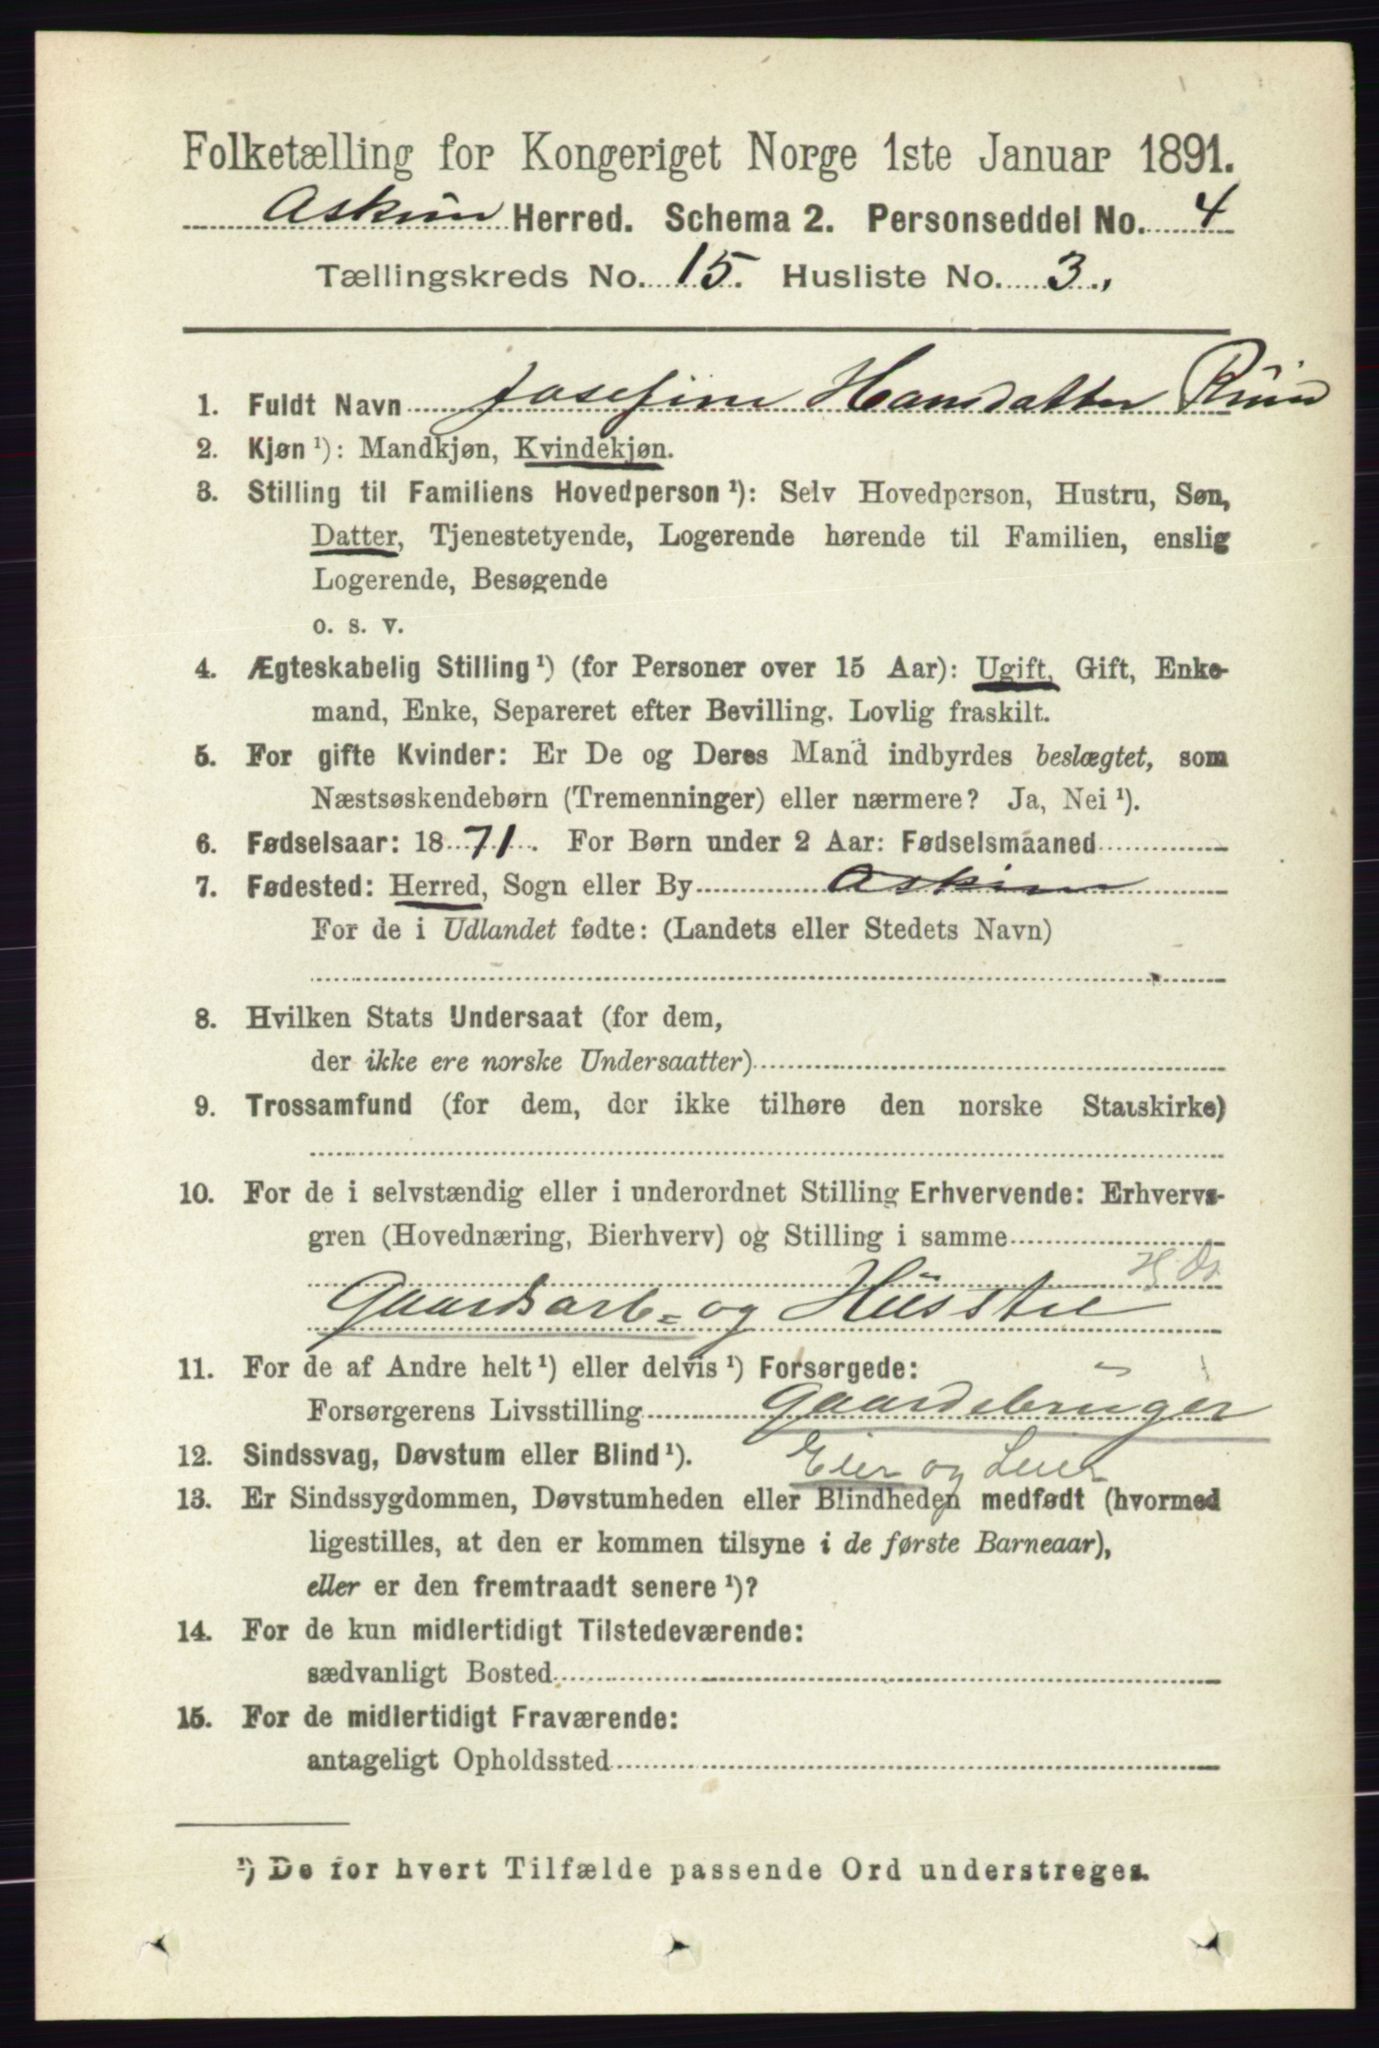 Folketælling for Kongeriget Norge 1ste Januar 1891.
Askim Herred. Schema 2. Personseddel No. 4
Tællingskreds No. 15. Husliste No. 3.
1. Fuldt Navn Josefine Hansdatter
2. Kjøn ¹): Mandkjøn, Kvindekjøn.
3. Stilling til Familiens Hovedperson ¹): Selv Hovedperson, Hustru, Søn,
Datter, Tjenestetyende, Logerende hørende til Familien, enslig
Logerende, Besøgende
o. s. v.
4. Ægteskabelig Stilling ¹) (for Personer over 15 Aar): Ugift, Gift, Enke-
mand, Enke, Separeret efter Bevilling. Lovlig fraskilt.
5. For gifte Kvinder: Er De og Deres Mand indbyrdes beslægtet, som
Næstsøskendebørn (Tremenninger) eller nærmere? Ja, Nei ¹).
6. Fødselsaar: 1871. For Børn under 2 Aar: Fødselsmaaned
7. Fødested: Herred, Sogn eller By Askim
For de i Udlandet fødte: (Landets eller Stedets Navn)
8. Hvilken Stats Undersaat (for dem,
der ikke ere norske Undersaatter)
9. Trossamfund (for dem, der ikke tilhøre den norske Statskirke)
10. For de i selvstændig eller i underordnet Stilling Erhvervende: Erhvervs-
gren (Hovednæring, Bierhverv) og Stilling i samme
Gaardsarb- og Husstel
11. For de af Andre helt ¹) eller delvis ¹) Forsørgede:
Forsørgerens Livsstilling Gaardebruger
12. Sindssvag, Døvstum eller Blind ¹). Eier og Leier
13. Er Sindssygdommen, Døvstumheden eller Blindheden medfødt (hvormed
ligestilles, at den er kommen tilsyne i de første Barneaar),
eller er den fremtraadt senere ¹)?
14. For de kun midlertidigt Tilstedeværende:
sædvanligt Bosted
15. For de midlertidigt Fraværende:
antageligt Opholdssted
¹) De for hvert Tilfælde passende Ord understreges.